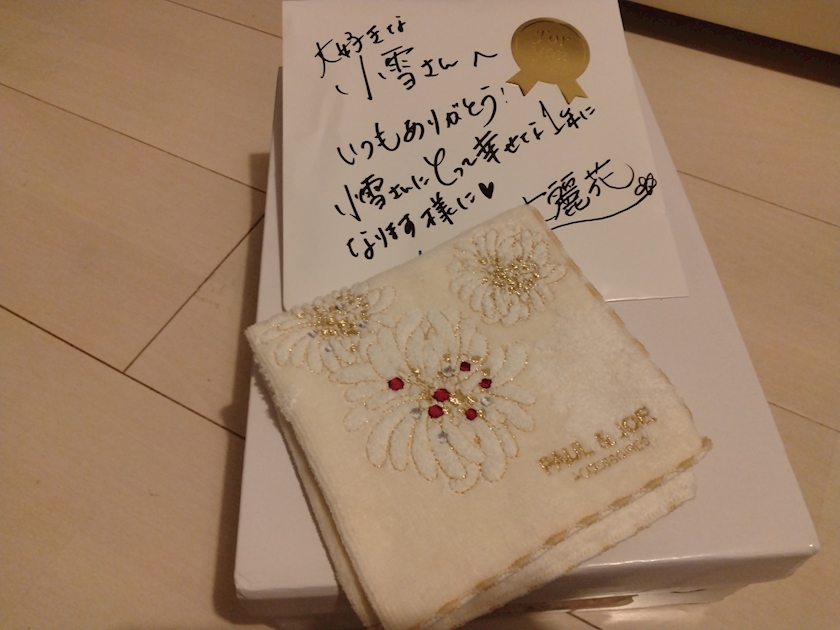 大好きな
小雪さんへ
いつもありがとう!
小雪さんにとって幸せな1年に
なります様に♥
麗花
PAUL & JOE
ACCESSOIRES